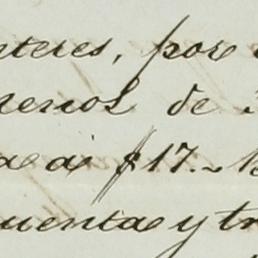 nteres, por
menos de
a a $17.~
uenta y tr